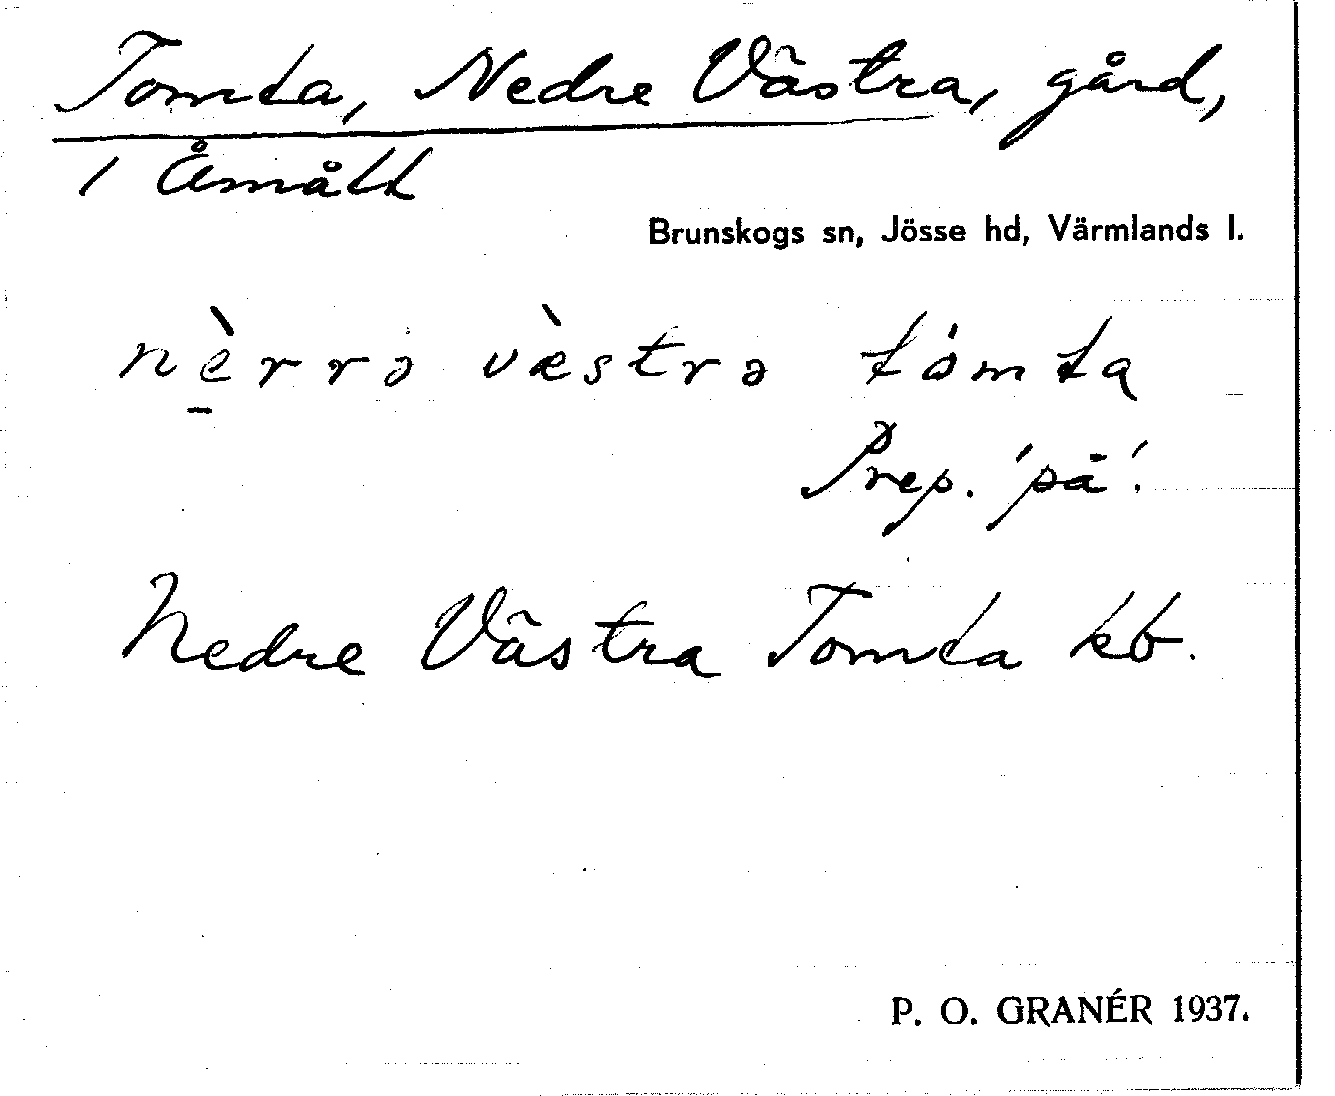 Tomta, Nedre Västra, gård,
i Åmått
Brunskogs sn, Jösse hd, Värmlands l.
nèrrə vèstrə tómta
Prep. 'på'.
Nedre Västra Tomta kb.
P. O. GRANÉR 1937.